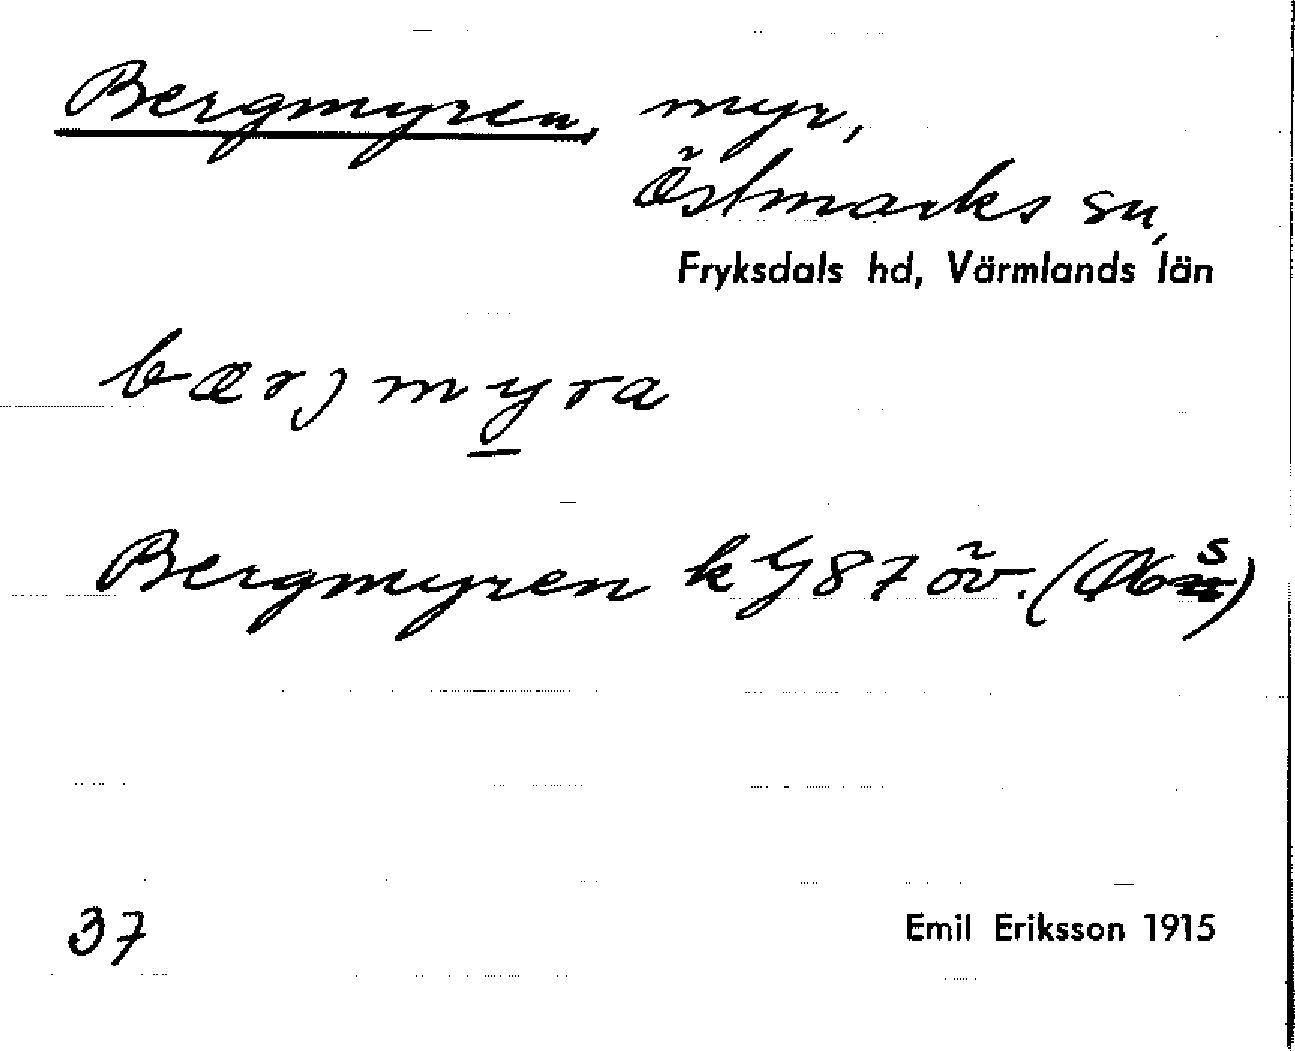 Bergmyren, myr,
Östmarks sn,
Fryksdals hd, Värmlands län
bærjmyra
Bergmyren kG 87 öv.
37
Emil Eriksson 1915